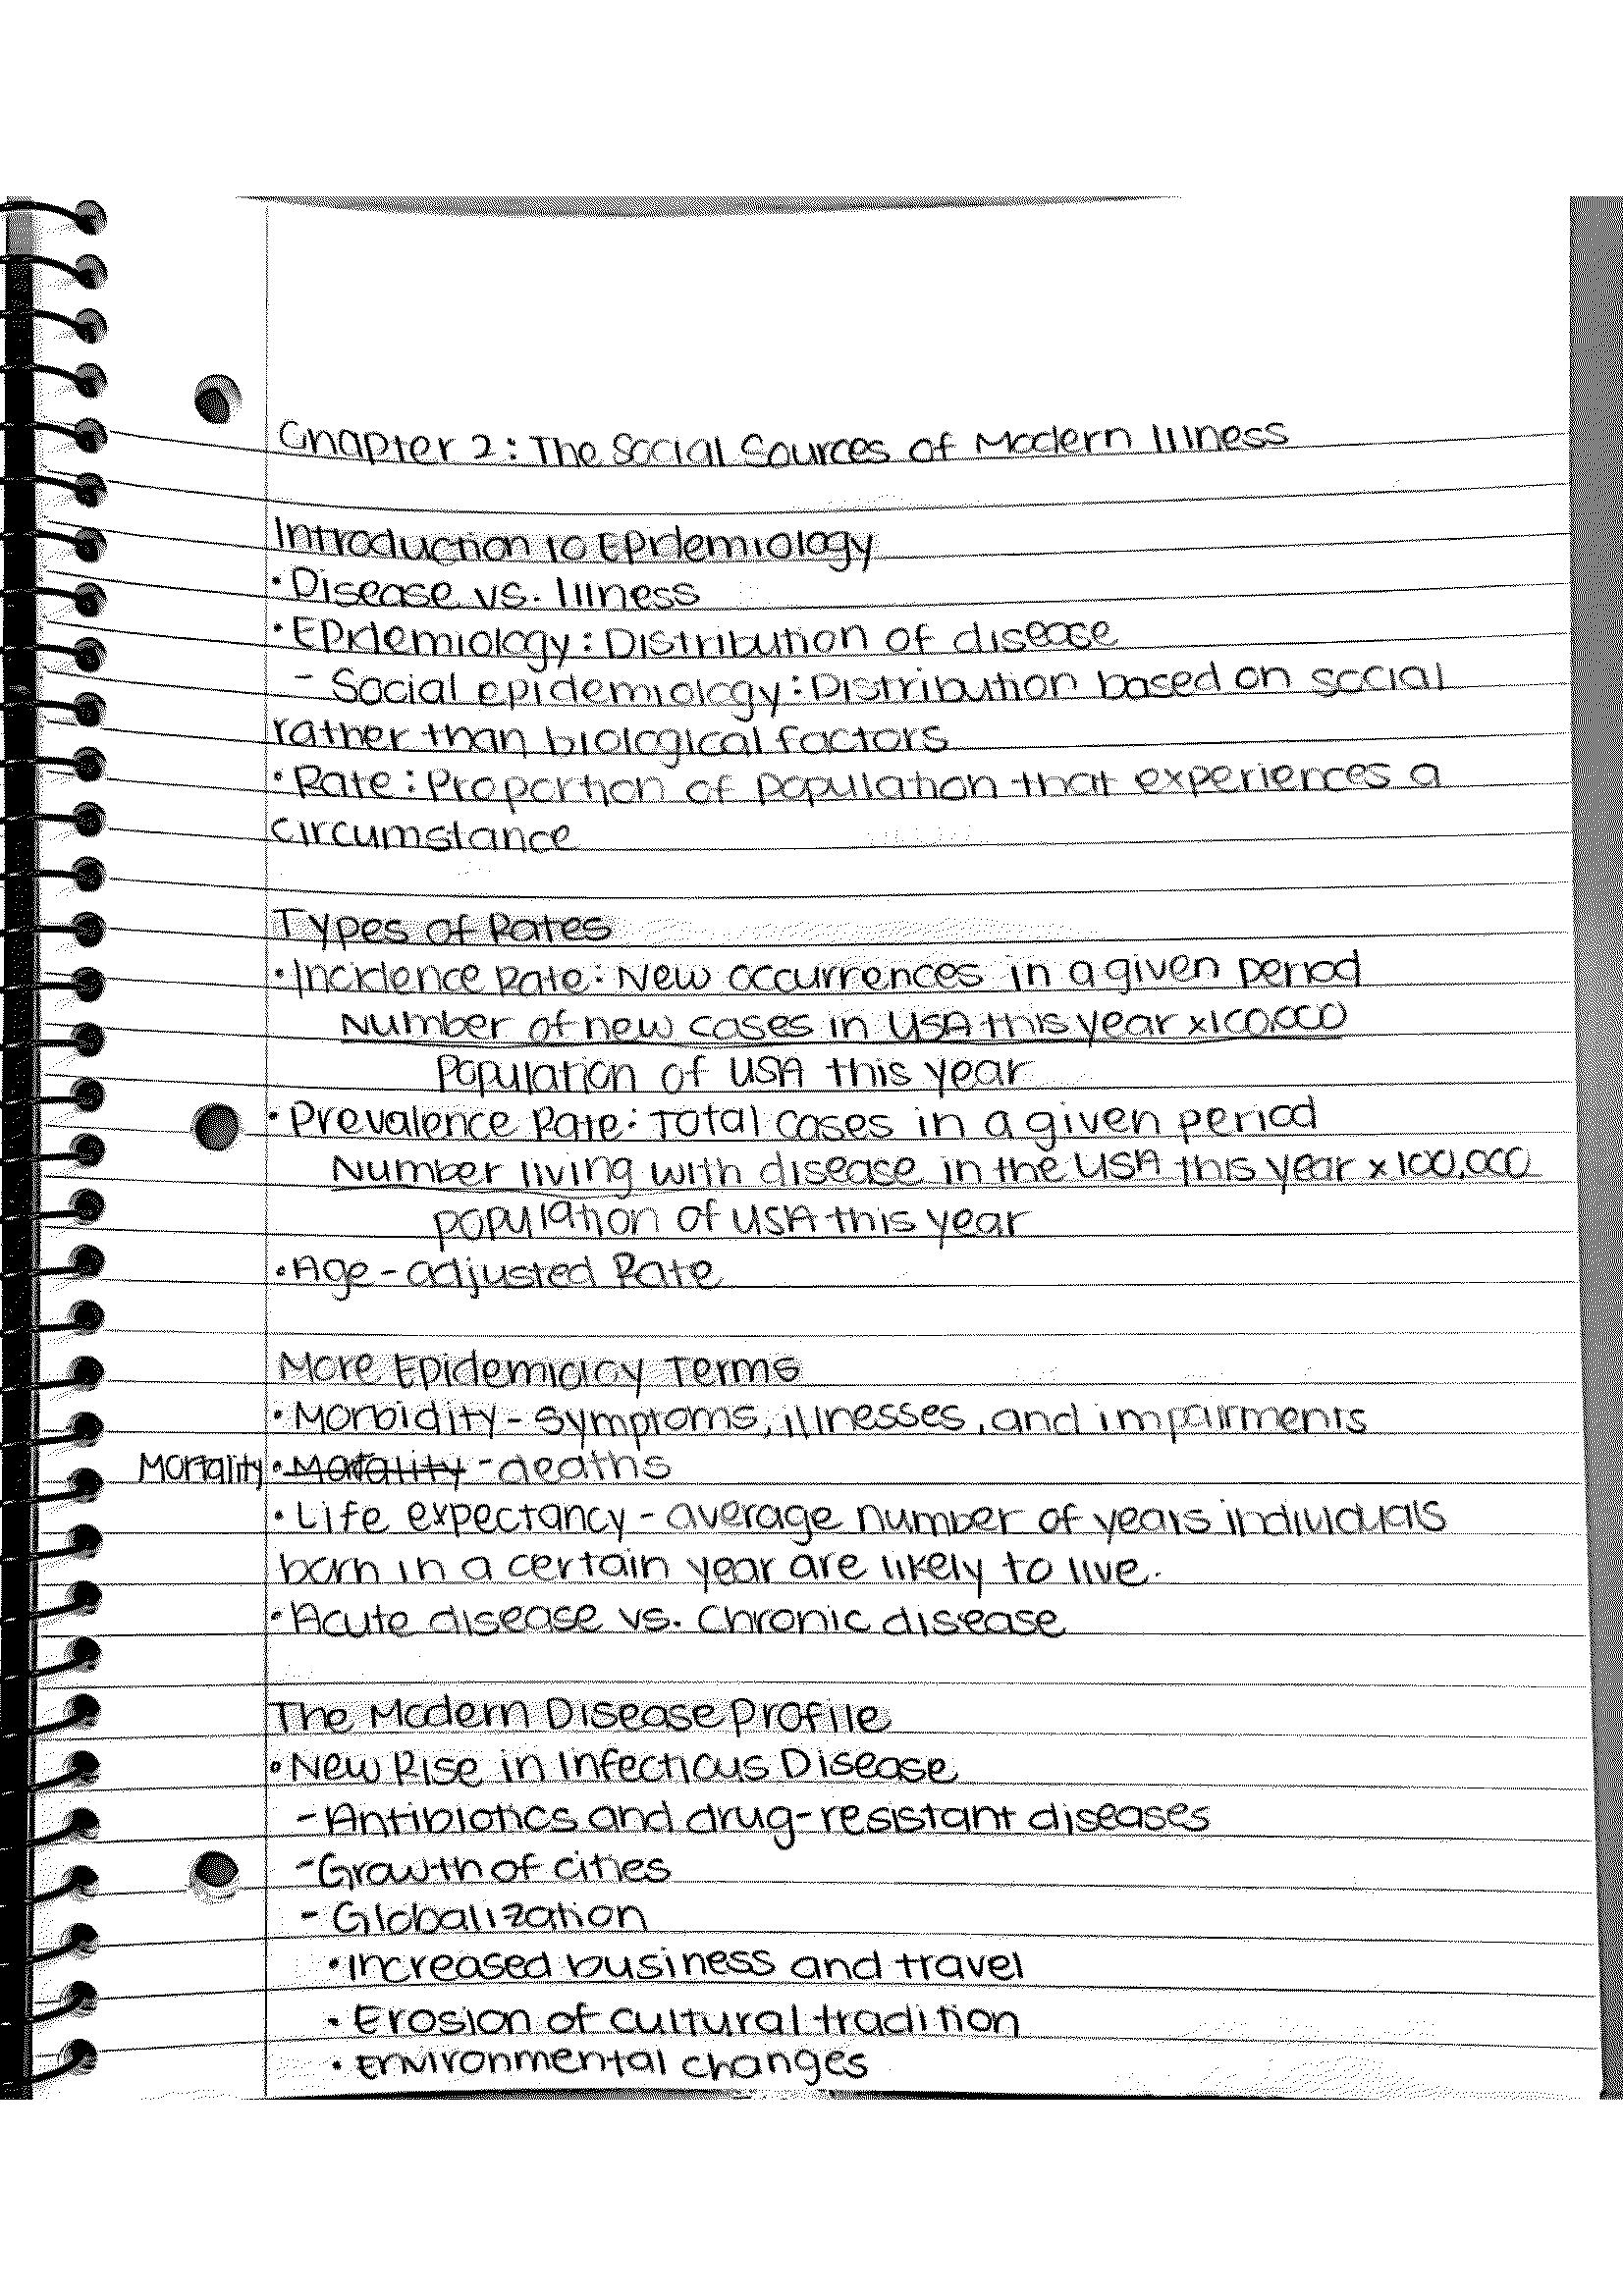 Chapter 2: The Social Sources of Modern Illness
Introduction to Epidemiology
• Disease vs. Illness
• Epidemiology: Distribution of disease
- Social epidemiology: Distribution based on social
rather than biological factors
• Rate: Proportion of population that experiences a
circumstance
Types of Rates
• Incidence Rate: New occurrences in a given period
Number of new cases in USA this year x100,000
Population of USA this year
• Prevalence Rate: Total cases in a given period
Number living with disease in the USA this year x100,000
population of USA this year
• Age-adjusted Rate
More Epidemiology Terms
• Morbidity - symptoms, illnesses, and impairments
Mortality • Mortality - deaths
• Life expectancy - average number of years individuals
born in a certain year are likely to live.
• Acute disease vs. Chronic disease
The Modern Disease Profile
• New Rise in Infectious Disease
- Antibiotics and drug-resistant diseases
- Growth of cities
- Globalization
• Increased business and travel
• Erosion of cultural tradition
• Environmental changes